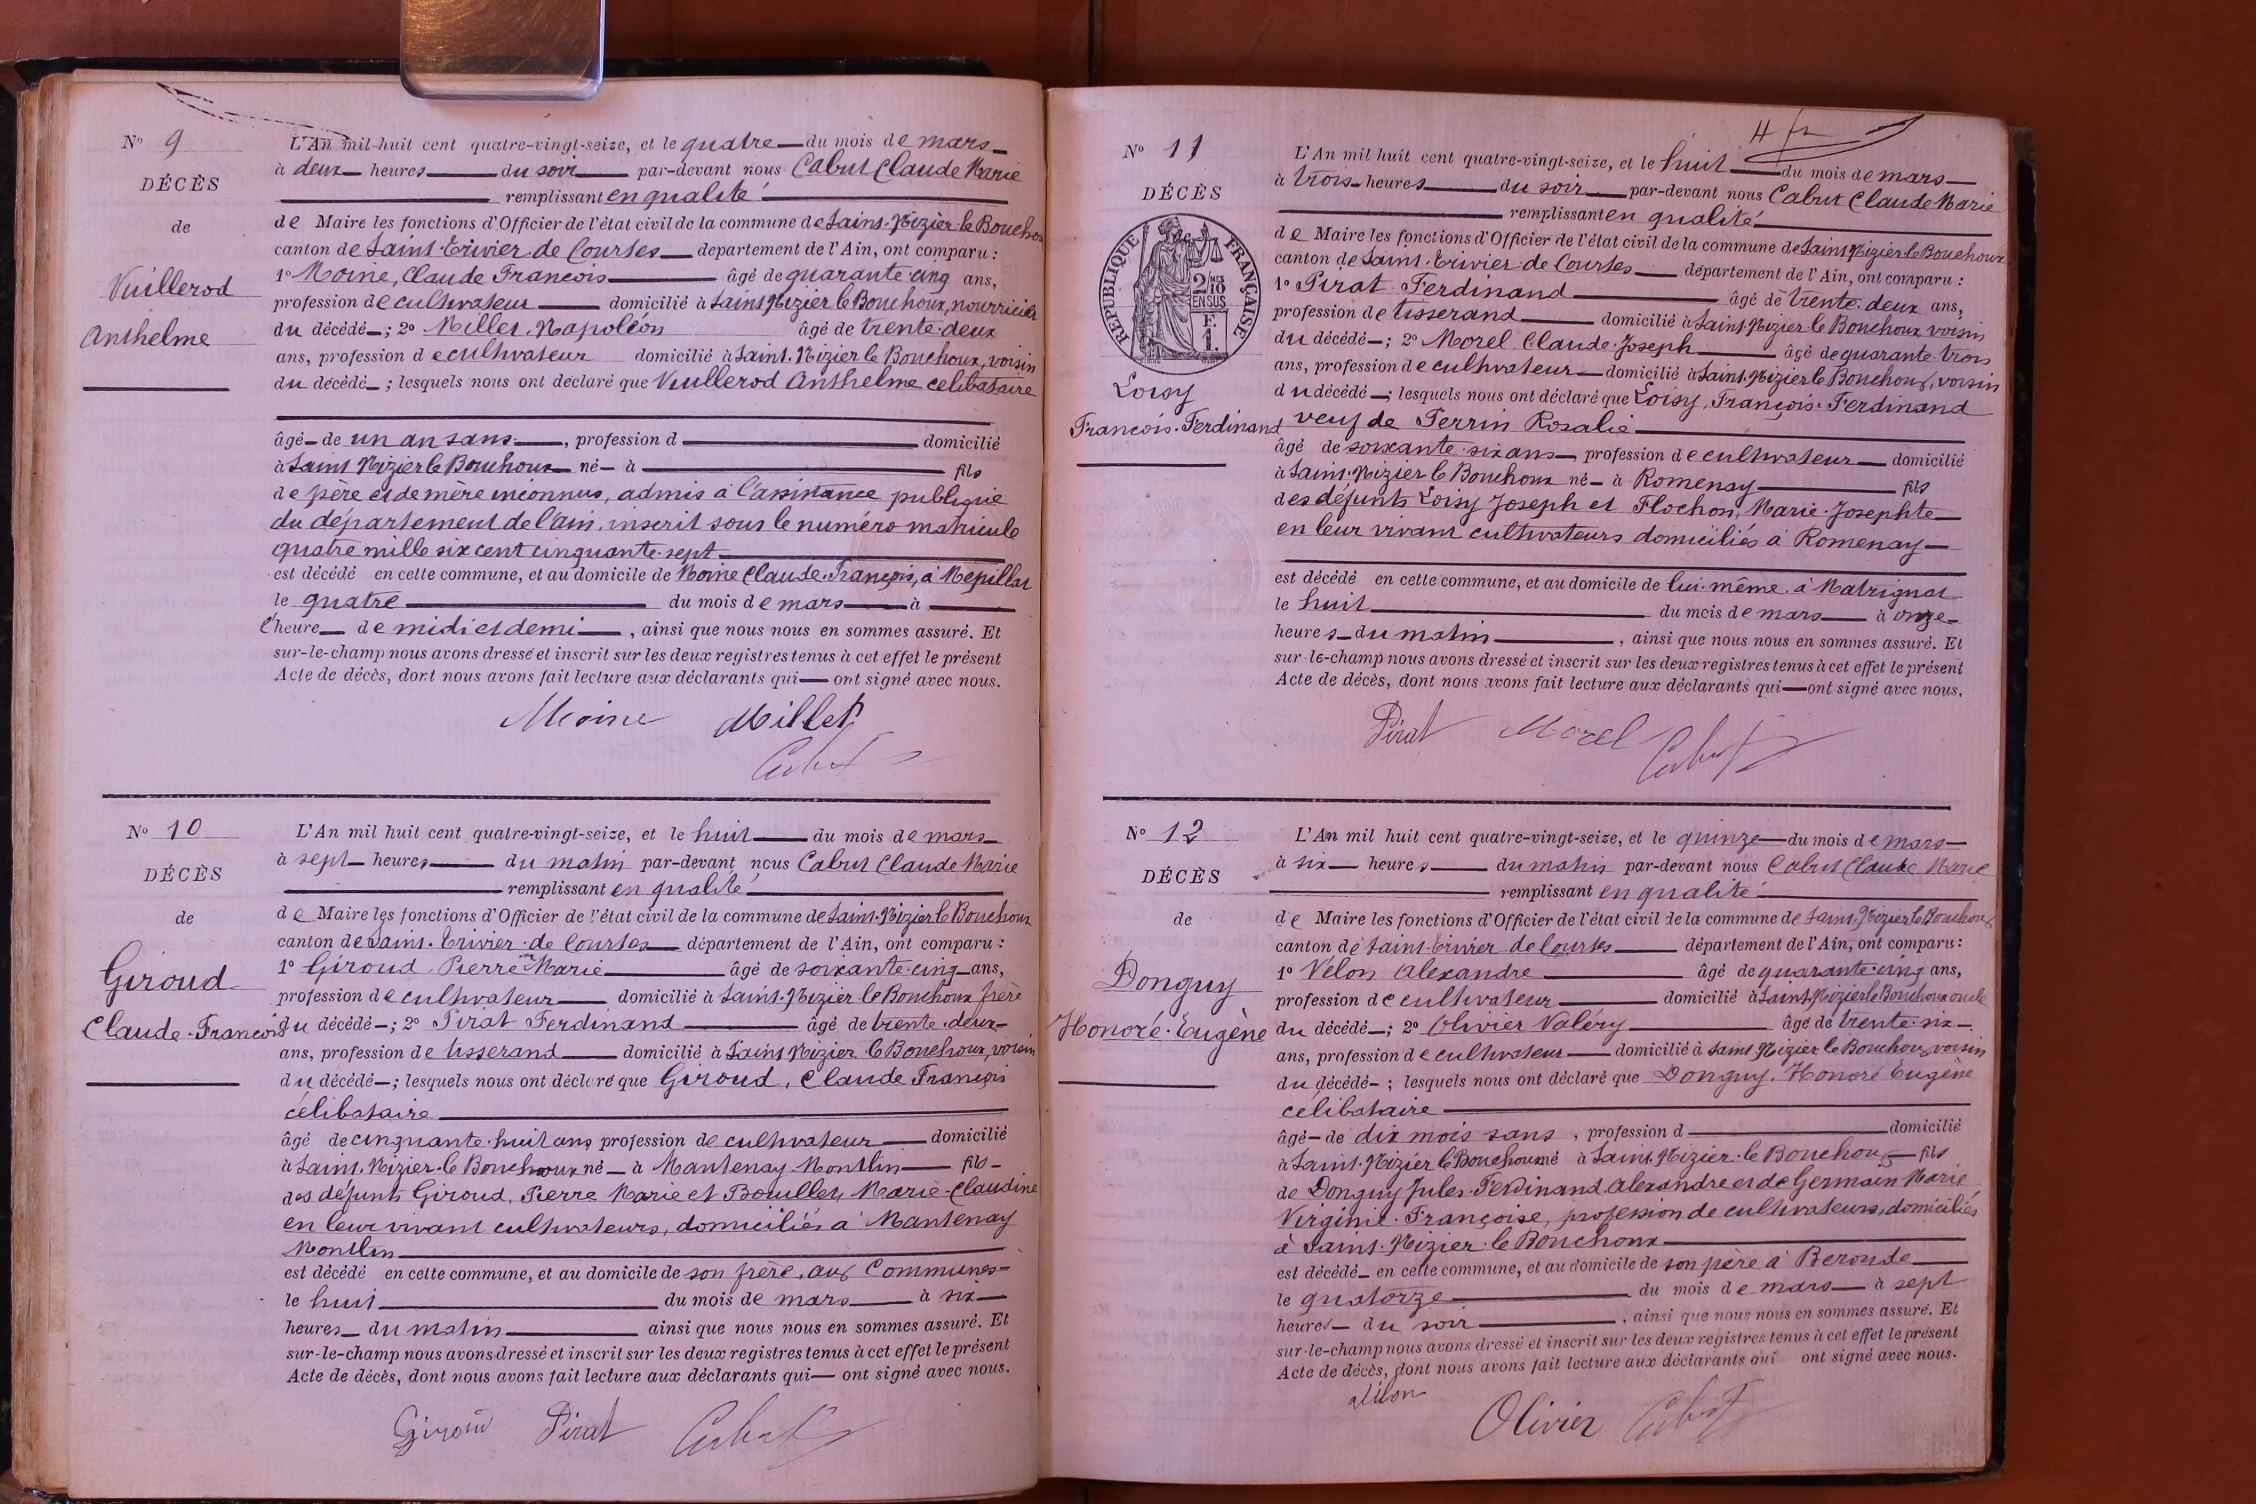 No 9
DÉCÈS
de
Vuillerod
Anthelme
L'An mil-huit cent quatre-vingt-seize, et le quatre du mois de mars
à deux heures du soir par-devant nous Cabut Claude Marie
remplissant en qualité
de Maire les fonctions d'Officier de l'état civil de la commune de Saint-Nizier-le-Bouchoux
canton de Saint-Trivier-de-Courtes departement de l'Ain, ont comparu :
1° Moine, Claude François âgé de quarante-cinq ans,
profession de cultivateur domicilié à Saint Nizier le Bouchoux, nourricier
du décédé ; 2° Millet Napoléon âgé de trente-deux
ans, profession de cultivateur domicilié à Saint-Nizier le Bouchoux, voisin
du décédé ; lesquels nous ont déclaré que Vuillerod Anthelme célibataire
âgé de un an sans , profession d domicilié
à Saint Nizier le Bouchoux né à fils
de père et de mère inconnus, admis à l'assistance publique
du département de l'Ain, inscrit sous le numéro matricule
quatre mille six cent cinquante-sept
est décédé en cette commune, et au domicile de Moine Claude-François, à Mepillat
le quatre du mois de mars à
l'heure de midi et demi , ainsi que nous nous en sommes assuré. Et
sur-le-champ nous avons dressé et inscrit sur les deux registres tenus à cet effet le présent
Acte de décès, dont nous avons fait lecture aux déclarants qui ont signé avec nous.
Moine Millet
Cabut
No 10
DÉCÈS
de
Giroud
Claude-François
L'An mil huit cent quatre-vingt-seize, et le huit du mois de mars
à sept heures du matin par-devant nous Cabut Claude Marie
remplissant en qualité
de Maire les fonctions d'Officier de l'état civil de la commune de Saint-Nizier le Bouchoux
canton de Saint-Trivier-de-Courtes département de l'Ain, ont comparu :
1° Giroud Pierre Marie âgé de soixante-cinq ans,
profession de cultivateur domicilié à Saint-Nizier le Bouchoux frère
du décédé ; 2° Pirat Ferdinand âgé de trente-deux
ans, profession de tisserand domicilié à Saint Nizier le Bouchoux, voisin
du décédé ; lesquels nous ont déclaré que Giroud, Claude François
célibataire
âgé de cinquante-huit ans profession de cultivateur domicilié
à Saint-Nizier-le Bouchoux né à Mantenay-Montlin fils
des défunts Giroud, Pierre Marie et Bouillet, Marie-Claudine
en leur vivant cultivateurs, domiciliés à Mantenay
Montlin
est décédé en cette commune, et au domicile de son frère, aux Communes
le huit du mois de mars à six
heures du matin ainsi que nous nous en sommes assuré. Et
sur-le-champ nous avons dressé et inscrit sur les deux registres tenus à cet effet le présent
Acte de décès, dont nous avons fait lecture aux déclarants qui ont signé avec nous.
Giroud Pirat Cabut
No 11
DÉCÈS
RÉPUBLIQUE FRANÇAISE
2 DES 10 EN SUS
F. 1.
Loisy
François-Ferdinand
L'An mil huit cent quatre-vingt-seize, et le huit du mois de mars
à trois heures du soir par-devant nous Cabut Claude Marie
remplissant en qualité
de Maire les fonctions d'Officier de l'état civil de la commune de Saint Nizier le Bouchoux
canton de Saint-Trivier-de-Courtes département de l'Ain, ont comparu :
1° Pirat Ferdinand âgé de trente-deux ans,
profession de tisserand domicilié à Saint-Nizier le Bouchoux voisin
du décédé ; 2° Morel Claude-Joseph âgé de quarante-trois
ans, profession de cultivateur domicilié à Saint-Nizier le Bouchoux, voisin
du décédé ; lesquels nous ont déclaré que Loisy, François-Ferdinand
veuf de Perrin Rosalie
âgé de soixante-six ans profession de cultivateur domicilié
à Saint-Nizier le Bouchoux né à Romenay fils
des défunts Loisy Joseph et Flochon, Marie-Josephte
en leur vivant cultivateurs domiciliés à Romenay
est décédé en cette commune, et au domicile de lui-même, à Matrignat
le huit du mois de mars à onze
heures du matin , ainsi que nous nous en sommes assuré. Et
sur-le-champ nous avons dressé et inscrit sur les deux registres tenus à cet effet le présent
Acte de décès, dont nous avons fait lecture aux déclarants qui ont signé avec nous,
Pirat Morel Cabut
No 12
DÉCÈS
de
Donguy
Honoré-Eugène
L'An mil huit cent quatre-vingt-seize, et le quinze du mois de mars
à six heures du matin par-devant nous Cabut Claude Marie
remplissant en qualité
de Maire les fonctions d'Officier de l'état civil de la commune de Saint-Nizier le Bouchoux
canton de Saint-Trivier de Courtes département de l'Ain, ont comparu :
1° Vélon Alexandre âgé de quarante-cinq ans,
profession de cultivateur domicilié à Saint-Nizier le Bouchoux oncle
du décédé ; 2° Olivier Valéry âgé de trente-six
ans, profession de cultivateur domicilié à Saint Nizier le Bouchoux voisin
du décédé ; lesquels nous ont déclaré que Donguy, Honoré Eugène
célibataire
âgé de dix mois sans , profession d domicilié
à Saint-Nizier le Bouchoux né à Saint-Nizier-le Bouchoux fils
de Donguy Jules-Ferdinand Alexandre et de Germain Marie
Virginie-Françoise, profession de cultivateurs, domiciliés
à Saint-Nizier-le Bouchoux
est décédé en cette commune, et au domicile de son père à Beroude
le quatorze du mois de mars à sept
heures du soir , ainsi que nous nous en sommes assuré. Et
sur-le-champ nous avons dressé et inscrit sur les deux registres tenus à cet effet le présent
Acte de décès, dont nous avons fait lecture aux déclarants qui ont signé avec nous.
Vélon
Olivier Cabut